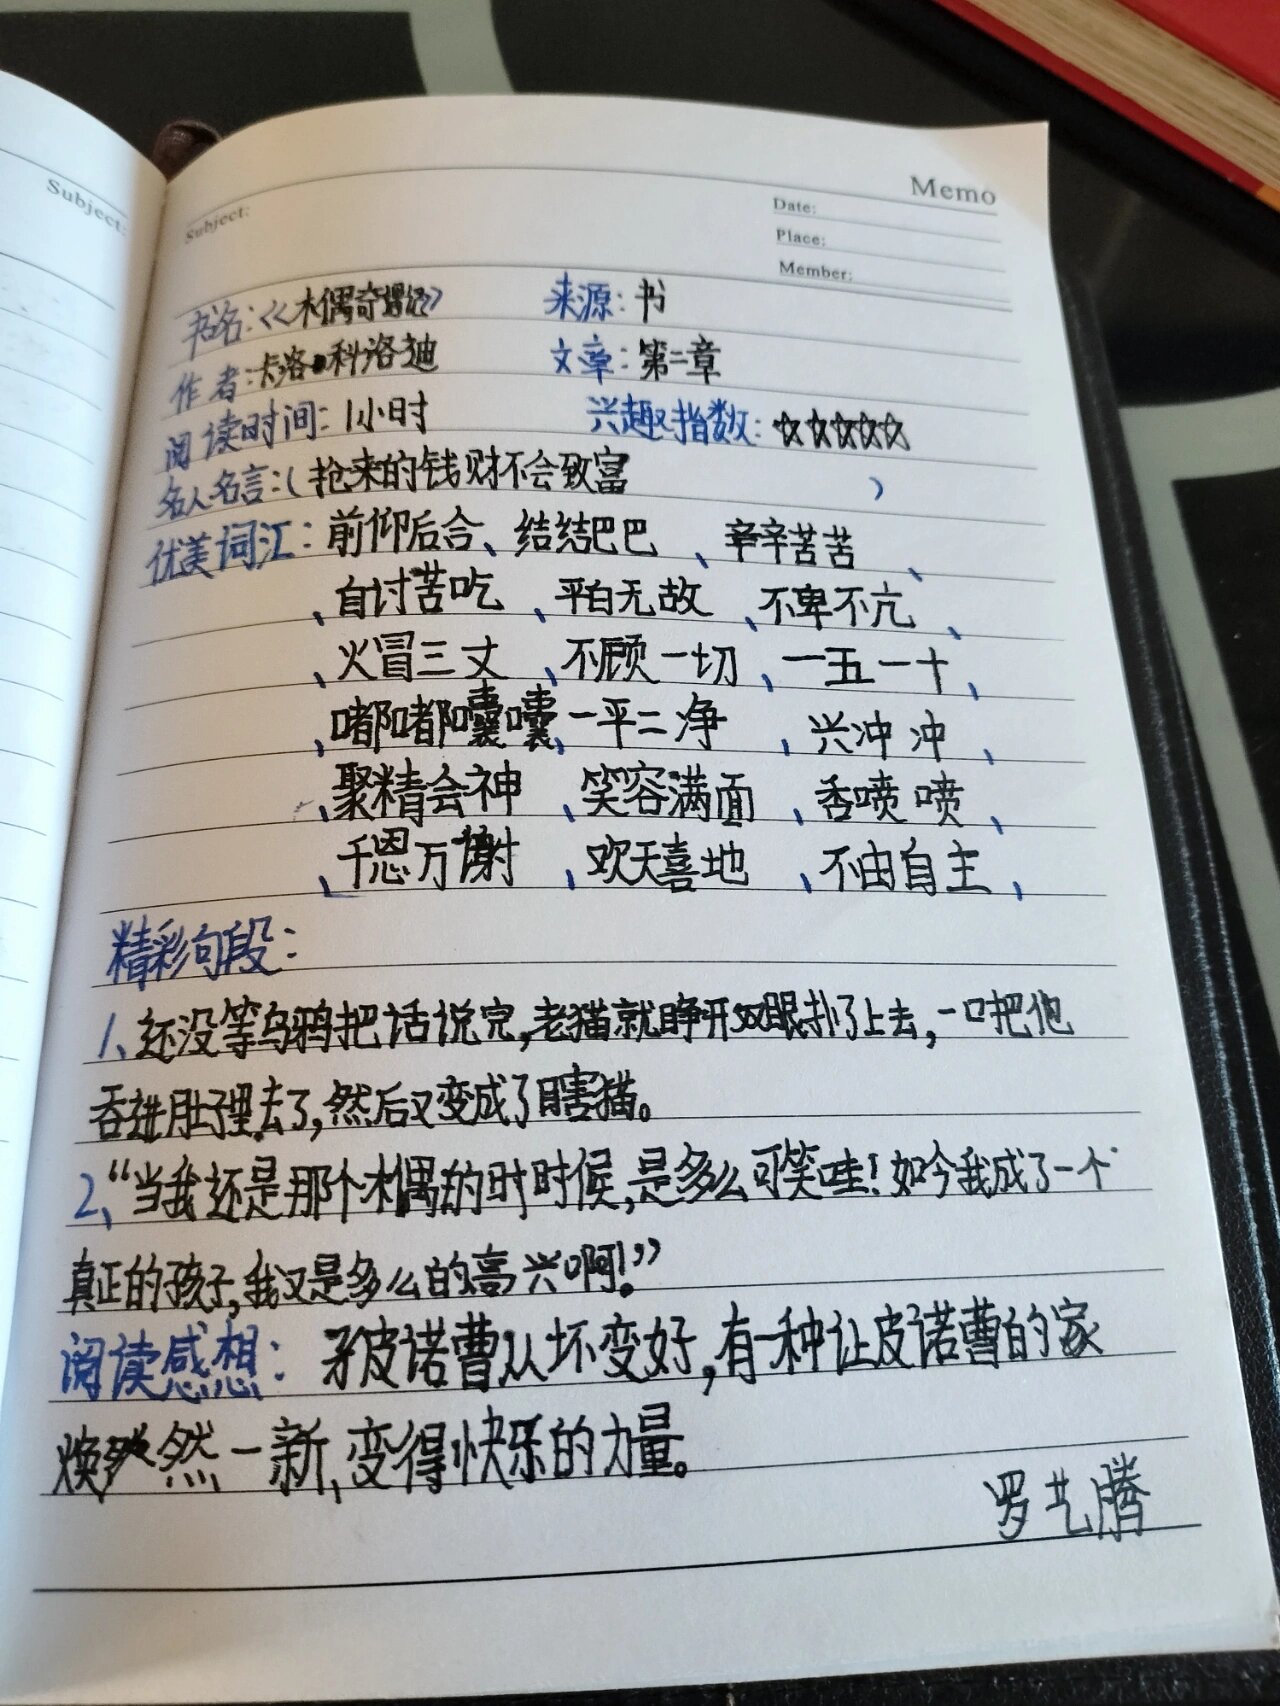 Subject:
Memo
Subject:
Date:
Place:
Member:
书名:《木偶奇遇记》 来源:书
作者:卡洛·科洛迪 文章:第二章
阅读时间:1小时 兴趣指数:☆☆☆☆☆
名人名言:(抢来的钱财不会致富 )
优美词汇:前仰后合、结结巴巴、辛辛苦苦、
、自讨苦吃、平白无故、不卑不亢、
、火冒三丈、不顾一切、一五一十、
、嘟嘟囔囔、一平二净、兴冲冲、
、聚精会神、笑容满面、香喷喷、
、千恩万谢、欢天喜地、不由自主、
精彩句段:
1、还没等乌鸦把话说完,老猫就睁开双眼扑了上去,一口把他
吞进肚子里去了,然后又变成了瞎猫。
2、“当我还是那个木偶的时时候,是多么可笑哇!如今我成了一个
真正的孩子,我又是多么的高兴啊!”
阅读感想: 皮诺曹从坏变好,有一种让皮诺曹的家
焕然一新,变得快乐的力量。
罗艺腾